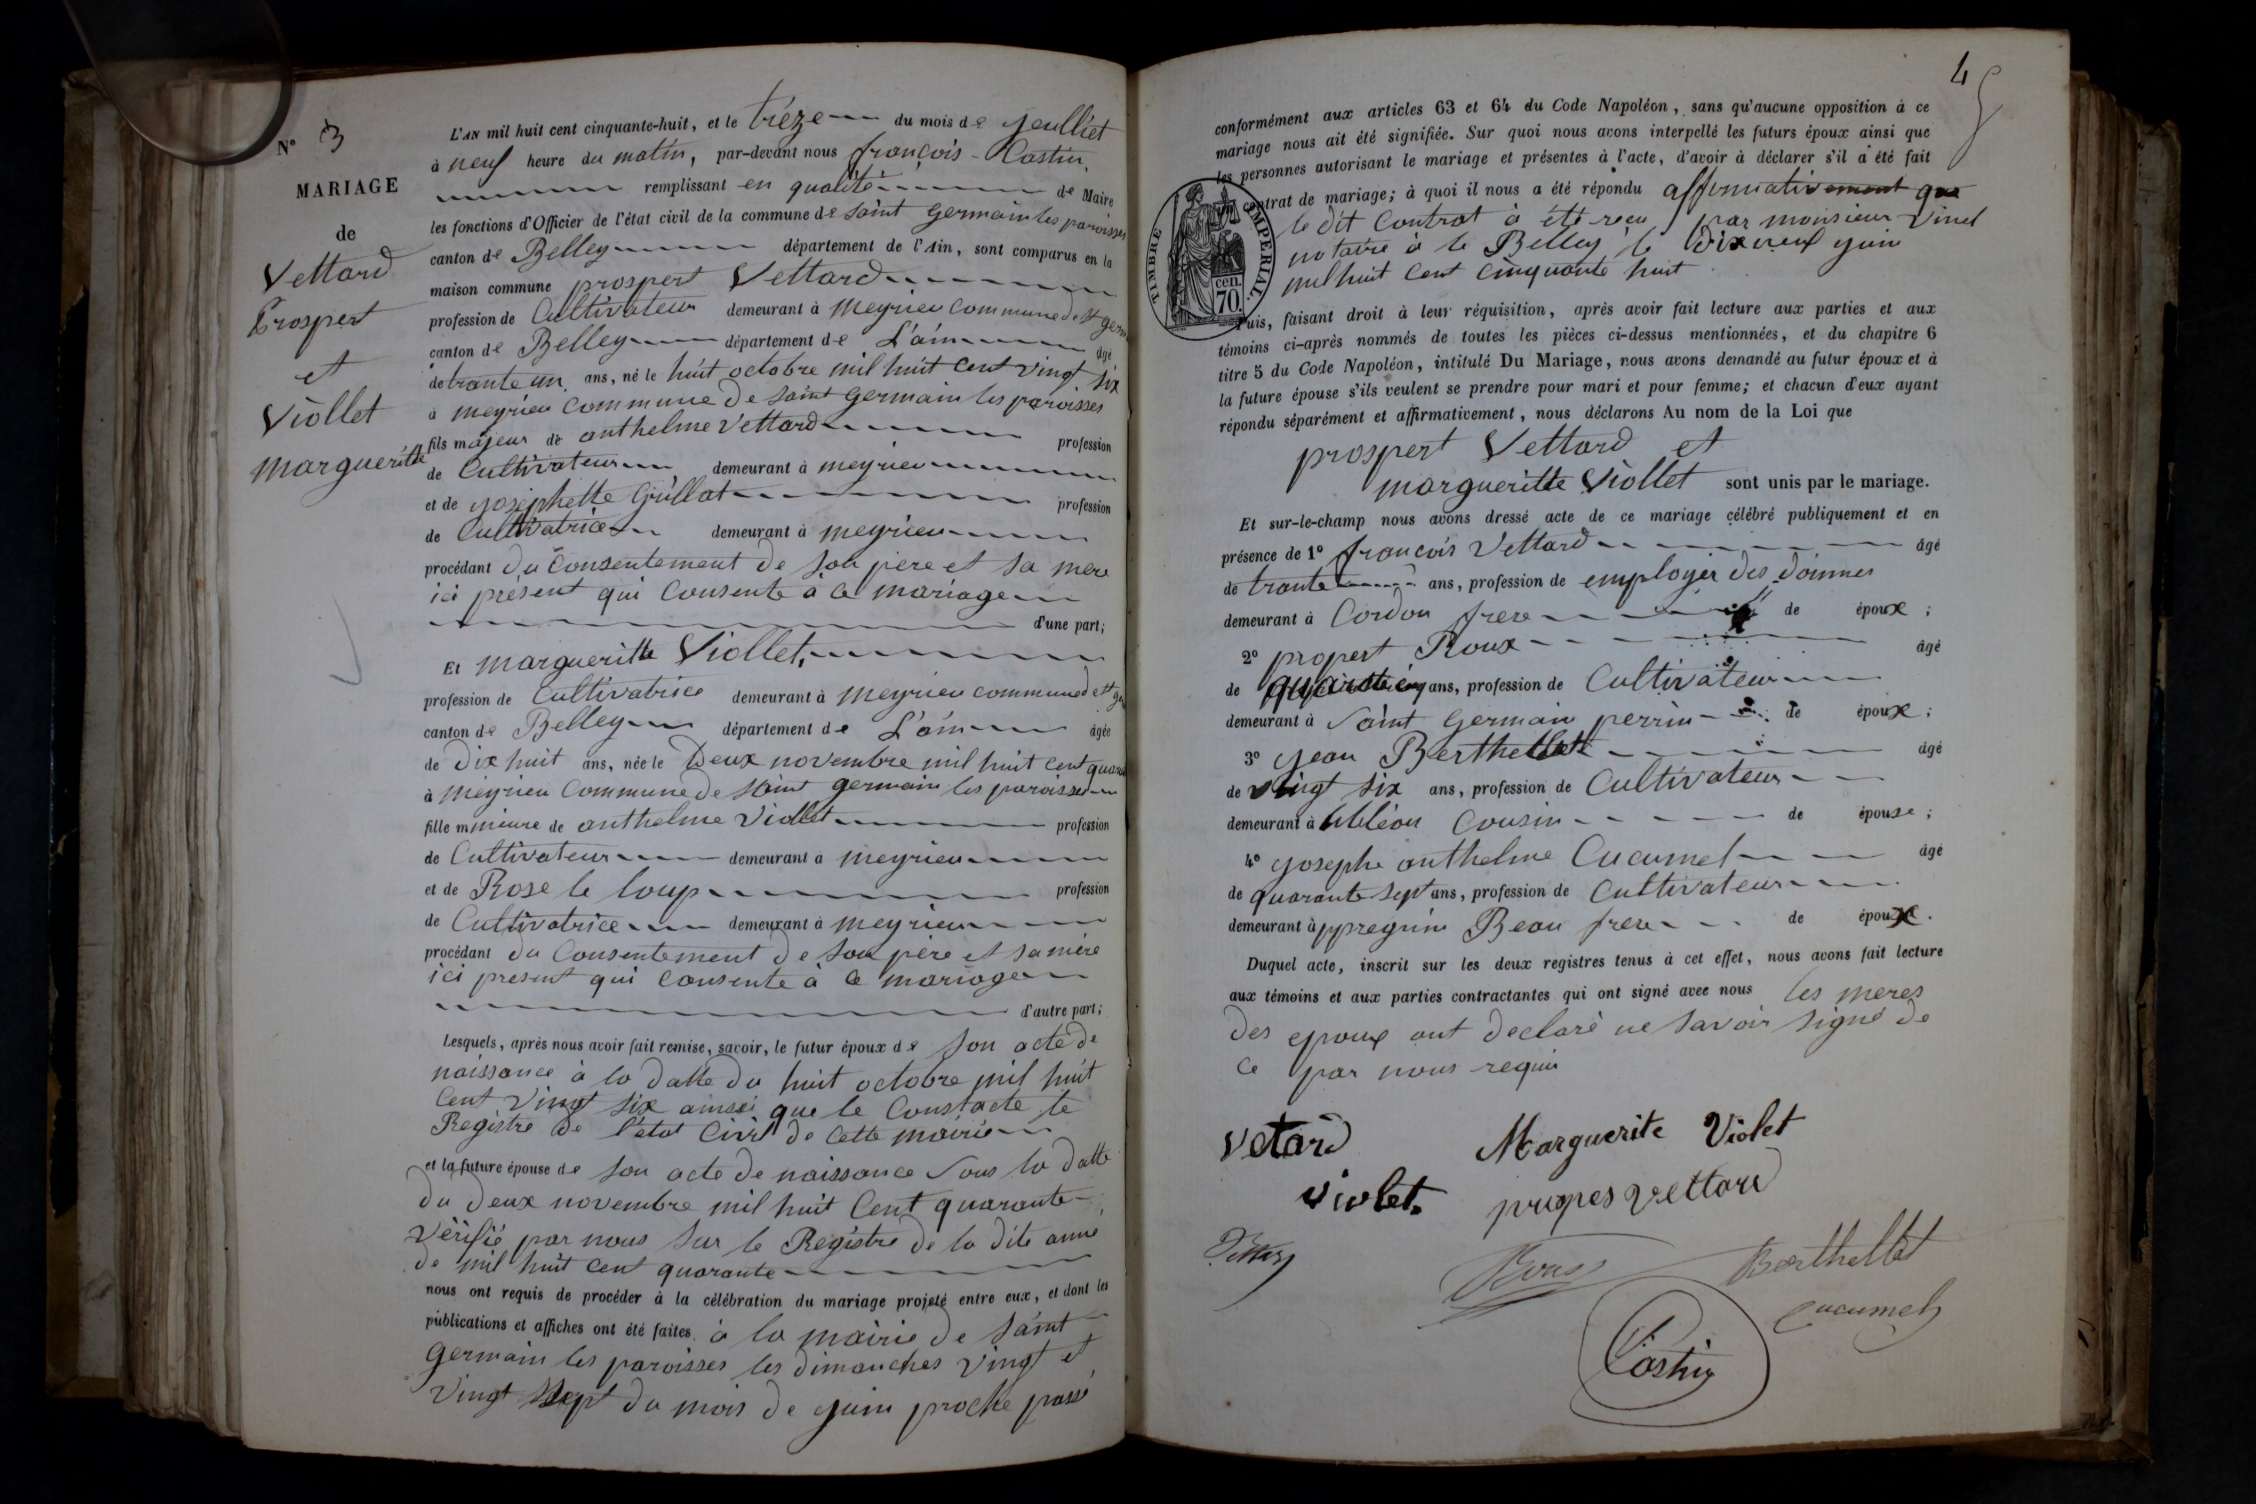 N° 3
MARIAGE
de
Vettard
Prospert
et
Viollet
margueritte
L'AN mil huit cent cinquante-huit, et le trèze du mois de jeulliet
à neuf heure du matin, par-devant nous françois Castin
remplissant en qualité de Maire
les fonctions d'Officier de l'état civil de la commune de saint germain les paroisses
canton de Belley département de l'Ain, sont comparus en la
maison commune prospert Vettard
profession de Cultivateur demeurant à meyrieu commune de st germ
canton de Belley département de L'ain âgé
de trante un ans, né le huit octobre mil huit cent vingt six
à meyrieu commune de saint germain les paroisses
fils majeur de anthelme Vettard profession
de Cultivateur demeurant à meyrieu
et de josephette Guillot profession
de Cultivatrice demeurant à meyrieu
procédant du consentement de son père et sa mere
ici présent qui consente à ce mariage
d'une part;
Et margueritte Viollet,
profession de Cultivatrice demeurant à meyrieu commune de st ge
canton de Belley département de L'ain âgée
de Dix huit ans, née le Deux novembre mil huit cent quaran
à meyrieu Commune de saint germain les paroisses
fille mineure de anthelme Viollet profession
de Cultivateur demeurant à meyrieu
et de Rose le loup profession
de Cultivatrice demeurant à meyrieu
procédant du Consentement de son père et sa mère
ici present qui consente à ce mariage
d'autre part;
Lesquels, après nous avoir fait remise, savoir, le futur époux de son acte de
naissance à la datte du huit octobre mil huit
cent vingt six ainsi que le constacte le
Registre de l'état Civil de cette mairie
et la future épouse de son acte de naissance sous la datte
du deux novembre mil huit Cent quarante
vérifié par nous sur le Registre de la dite anné
de mil huit cent quarante
nous ont requis de procéder à la célébration du mariage projeté entre eux, et dont les
publications et affiches ont été faites à la mairie de saint
germain les paroisses les dimanches vingt et
vingt sept du mois de juin proche passé
4
conformément aux articles 63 et 64 du Code Napoléon, sans qu'aucune opposition à ce
mariage nous ait été signifiée. Sur quoi nous avons interpellé les futurs époux ainsi que
les personnes autorisant le mariage et présentes à l'acte, d'avoir à déclarer s'il a été fait
contrat de mariage; à quoi il nous a été répondu affirmativement que
le dit Contrat à été recu par monsieur Vinel
notaire à le Belley le dix neuf juin
mil huit cent cinquante huit
TIMBRE IMPERIAL.
70 cen.
Puis, faisant droit à leur réquisition, après avoir fait lecture aux parties et aux
témoins ci-après nommés de toutes les pièces ci-dessus mentionnées, et du chapitre 6
titre 5 du Code Napoléon, intitulé Du Mariage, nous avons demandé au futur époux et à
la future épouse s'ils veulent se prendre pour mari et pour femme; et chacun d'eux ayant
répondu séparément et affirmativement, nous déclarons Au nom de la Loi que
prospert Vettard et
margueritte Viollet sont unis par le mariage.
Et sur-le-champ nous avons dressé acte de ce mariage célébré publiquement et en
présence de 1° françois Vettard âgé
de trante ans, profession de employer des doinnes
demeurant à Cordon frere de époux;
2° propert Roux âgé
de ans, profession de Cultivateur
demeurant à saint germain perrin de époux;
3° jean Berthellet âgé
de vingt six ans, profession de Cultivateur
demeurant à Cousin de épouse;
4° josephe anthelme Cucumel âgé
de quarante sept ans, profession de Cultivateur
demeurant à ppregnin Beau frere de époux.
Duquel acte, inscrit sur les deux registres tenus à cet effet, nous avons fait lecture
aux témoins et aux parties contractantes qui ont signé avec nous les meres
des epoux ont declaré ne savoir signé de
ce par nous requis
Vetard Marguerite Violet
Violet. propes vettard
Roux Berthellet
Cucumel
Castin